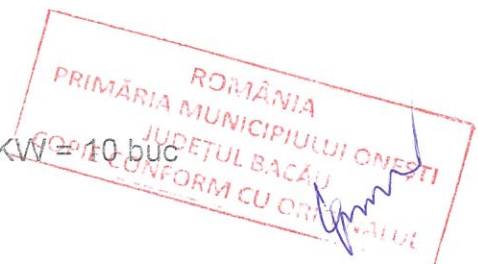 ROMÂNIA
PRIMĂRIA MUNICIPIULUI ONEȘTI
JUDEȚUL BACĂU
COPIE CONFORM CU ORIGINALUL
KW = 10 buc